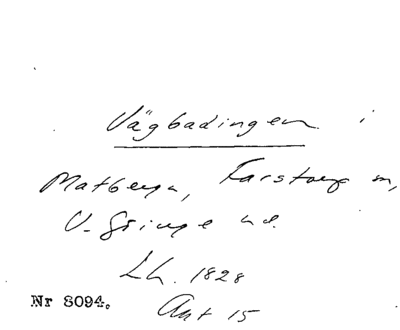 Vägbadingen i
Matbergn, Farstorp sn,
V. Göinge hd.
Lh. 1828
Nr 8094. Ant 15